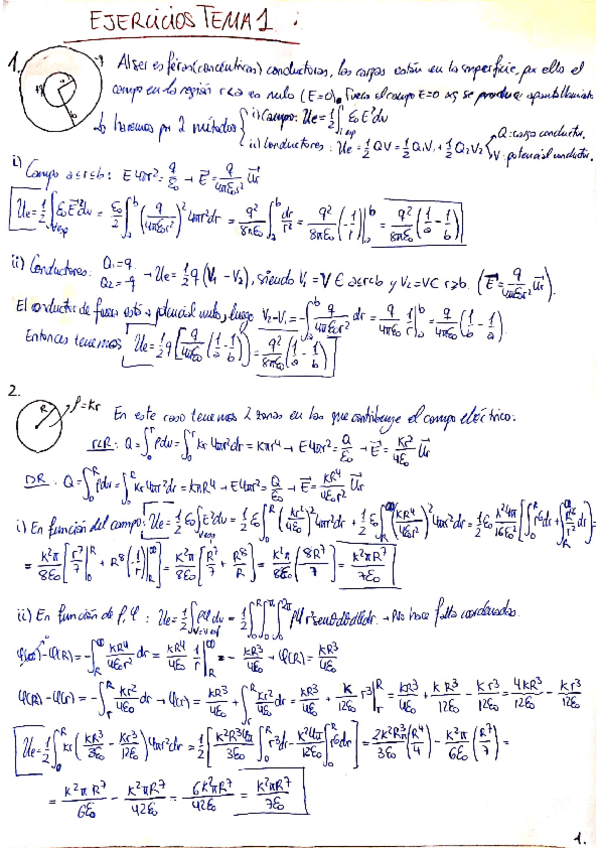 EJERCICIOS TEMA 1 :
1. Al ser esferas (concéntricas) conductoras, las cargas están en la superficie, por ello el
campo en la región r<a es nulo (E=0). Pues el campo E=0 se produce apantallamiento
Lo haremos por 2 métodos { i) Campo: Ue = 1/2 ∫ ε₀ E² dv
ii) Conductores: Ue = 1/2 QV = 1/2 Q₁V₁ + 1/2 Q₂V₂ { Q: carga conductor.
V: potencial conductor.
i) Campo a≤r≤b: E4πr² = q/ε₀ → E = q/4πε₀r² ur
Ue = 1/2 ∫ ε₀E² dv = ε₀/2 ∫ₐᵇ (q/4πε₀r²)² 4πr² dr = q²/8πε₀ ∫ₐᵇ dr/r² = q²/8πε₀ (-1/r)|ₐᵇ = q²/8πε₀ (1/a - 1/b)
ii) Conductores: Q₁=q
Q₂=-q → Ue = 1/2 q (V₁ - V₂), siendo V₁ = V ∈ a≤r<b y V₂ = V ⊂ r≥b. (E = q/4πε₀r² ur).
El conductor de fuera está a potencial nulo, luego V₂-V₁ = -∫ₐᵇ q/4πε₀r² dr = q/4πε₀ 1/r|ₐᵇ = q/4πε₀ (1/b - 1/a).
Entonces tenemos Ue = 1/2 q [q/4πε₀ (1/a - 1/b)] = q²/8πε₀ (1/a - 1/b)
2. R ρ=Kr
En este caso tenemos 2 zonas en las que contribuye el campo eléctrico.
r<R: Q = ∫₀ʳ ρdv = ∫₀ʳ Kr 4πr² dr = Kπr⁴ → E4πr² = Q/ε₀ → E = Kr²/4ε₀ ur
r>R: Q = ∫₀ᴿ ρdv = ∫₀ᴿ Kr 4πr² dr = KπR⁴ → E4πr² = Q/ε₀ → E = KR⁴/4ε₀r² ur
i) En función del campo: Ue = 1/2 ε₀ ∫ E² dv = 1/2 ε₀ ∫₀ᴿ (Kr²/4ε₀)² 4πr² dr + 1/2 ε₀ ∫ (KR⁴/4ε₀r²)² 4πr² dr = 1/2 ε₀ K²4π/16ε₀² [∫₀ᴿ r⁶ dr + ∫ R⁸/r² dr] =
= K²π/8ε₀ [r⁷/7|₀ᴿ + R⁸ (-1/r)|] = K²π/8ε₀ [R⁷/7 + R⁸/R] = K²π/8ε₀ (8R⁷/7) = K²πR⁷/7ε₀
ii) En función de ρ, φ: Ue = 1/2 ∫ ρφ dv = 1/2 ∫₀ᴿ ∫₀^π ∫₀^2π ρφ r² senθ dθ dφ dr. → No hace falta coordenadas.
φ(∞) - φ(R) = -∫ KR⁴/4ε₀r² dr = KR⁴/4ε₀ 1/r| = - KR³/4ε₀ → φ(R) = KR³/4ε₀
φ(R) - φ(r) = -∫ Kr²/4ε₀ dr → φ(r) = KR³/4ε₀ + ∫ Kr²/4ε₀ dr = KR³/4ε₀ + K/12ε₀ r³| = KR³/4ε₀ + KR³/12ε₀ - Kr³/12ε₀ = 4KR³/12ε₀ - Kr³/12ε₀
Ue = 1/2 ∫₀ᴿ Kr (KR³/3ε₀ - Kr³/12ε₀) 4πr² dr = 1/2 [K²R³4π/3ε₀ ∫₀ᴿ r³ dr - K²4π/12ε₀ ∫₀ᴿ r⁶ dr] = 2K²R³π/3ε₀ (R⁴/4) - K²π/6ε₀ (R⁷/7) =
= K²πR⁷/6ε₀ - K²πR⁷/42ε₀ = 6K²πR⁷/42ε₀ = K²πR⁷/7ε₀
1.